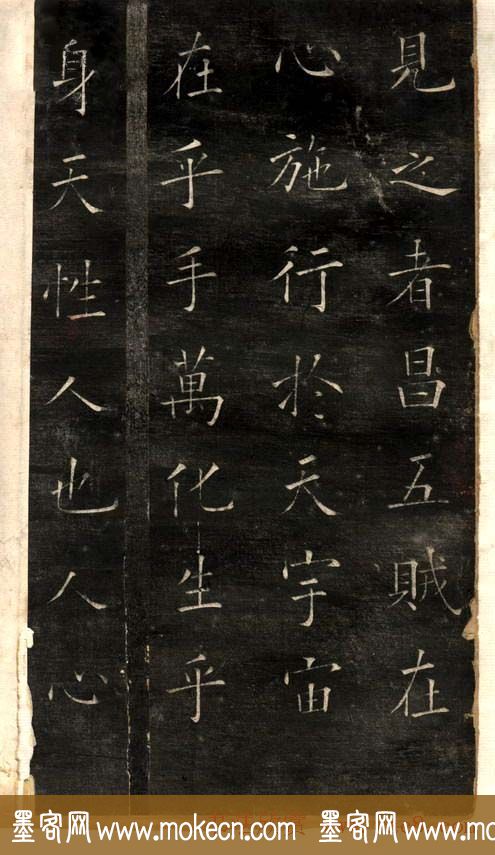 見之者昌五賊在
心施行於天宇宙
在乎手萬化生乎
身天性人也人心
墨客网 www.mokecn.com 墨客网 www.mokecn.com